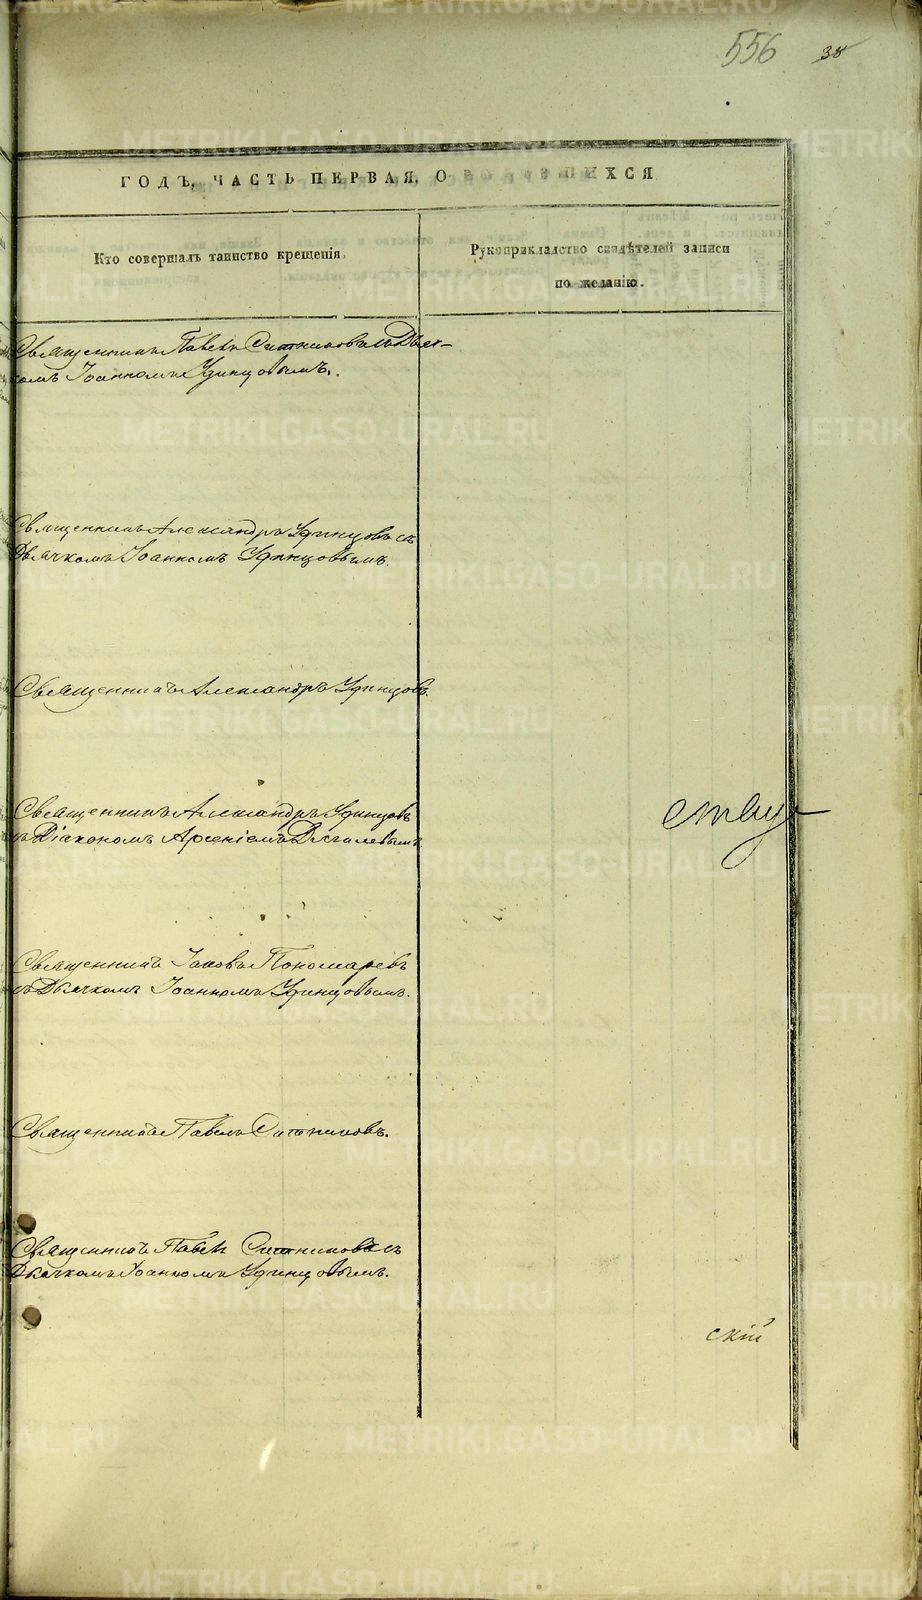 556 38
ГОДЪ, ЧАСТЬ ПЕРВАЯ, О РОДИВШИХСЯ
Кто совершалъ таинство крещенія.
Рукоприкладство свидѣтелей записи
по желанію.
Священникъ Павелъ Ситниковъ съ Дьяч-
комъ Іоанномъ Удинцовымъ.
Священникъ Александръ Удинцовъ съ
Дьячкомъ Іоанномъ Удинцовымъ.
Священникъ Александръ Удинцовъ.
Священникъ Александръ Удинцовъ
съ Діакономъ Арсеніемъ Дягилевымъ
ству
Священникъ Іаковъ Пономаревъ
съ Дьячкомъ Іоанномъ Удинцовымъ.
Священникъ Павелъ Ситниковъ.
Священникъ Павелъ Ситниковъ съ
Дьячкомъ Іоанномъ Удинцовымъ.
скій
METRIKI.GASO-URAL.RU